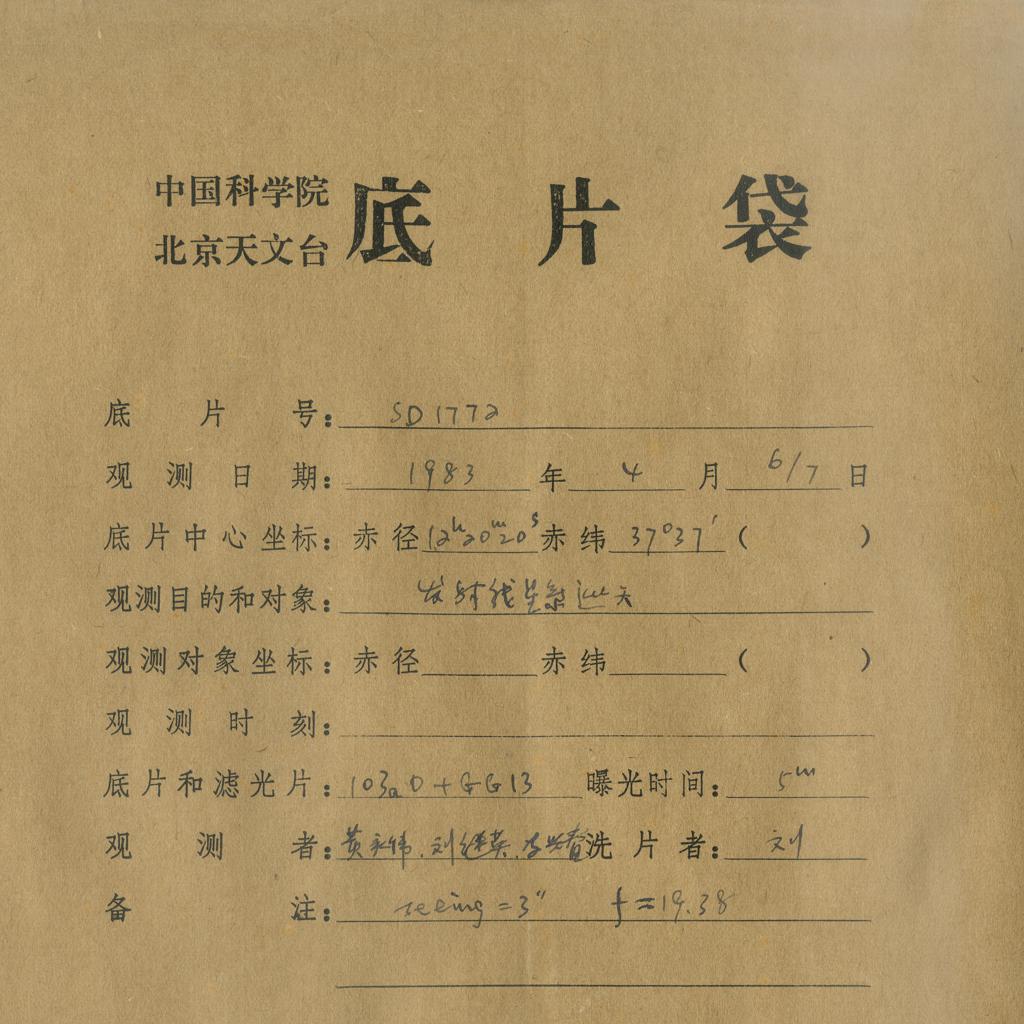 中国科学院
北京天文台
底片袋
底片号: SD1772
观测日期: 1983年4月6/7日
底片中心坐标: 赤径12h20m20s赤纬37°37′( )
观测目的和对象: 发射线星系巡天
观测对象坐标: 赤径 赤纬 ( )
观测时刻:
底片和滤光片: 103aO+GG13 曝光时间: 5m
观测者: 黄永伟.刘继英. 洗片者: 刘
备注: seeing=3" f=19.38